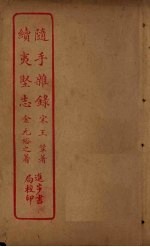 隨手雜錄 宋王鞏著
續夷堅志 金元裕之著
進步書局校印